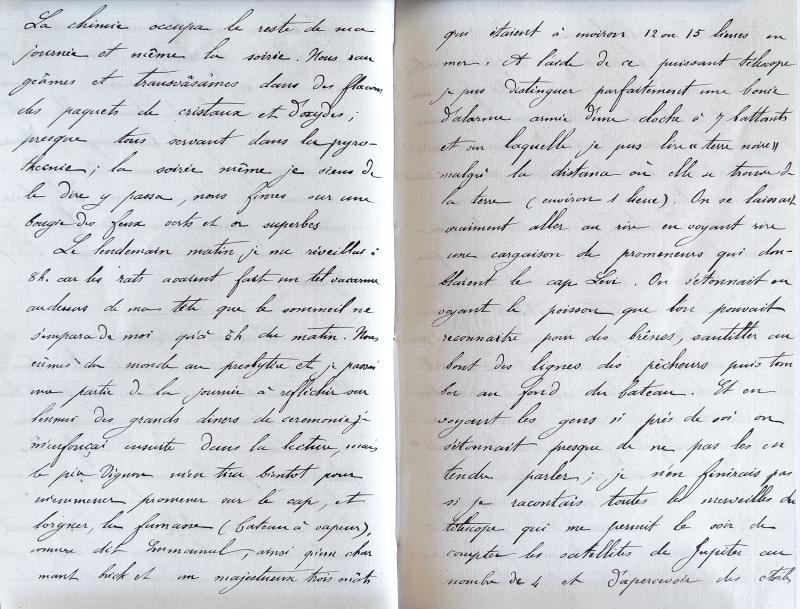 La chimie occupa le reste de ma
journée et même la soirée. Nous ran
geâmes et transvasâmes dans des flacons
des paquets de cristaux et d'oxydes;
presque tous servant dans la pyro-
thecnie; la soirée même je viens de
le dire y passa, nous fîmes sur une
bougie des feux verts et or superbes
Le lendemain matin je me réveillai à
8h. car les rats avaient fait un tel vacarme
au dessus de ma tête que le sommeil ne
s'empara de moi qu'à 5h du matin. Nous
eûmes du monde au presbytère et je passai
une partie de la journée à réfléchir sur
l'ennui des grands dîners de cérémonie j-
m'enfonçai ensuite dans la lecture, mais
le père Vignon m'en tira bientot pour
m'emmener promener sur le cap, et
lorgner, le fumane (bateau à vapeur),
comme dit Emmanuel, ainsi qu'un char
mant brick et un majestueux trois mâts
qui étaient à environ 12 ou 15 lieues en
mer. A l'aide de ce puissant télescope
je pus distinguer parfaitement une bouée
d'alarme armée d'une cloche à 7 battants
et sur laquelle je pus lire «terre noire»
malgré la distance où elle se trouve de
la terre (environ 1 lieue). On se laissait
vraiment aller au rire en voyant rire
une cargaison de promeneurs qui dou-
blaient le cap Lévi. On s'étonnait en
voyant le poisson que l'on pouvait
reconnaitre pour des brêmes, sautiller au
bout des lignes des pêcheurs puis tom
ber au fond du bateau. Et en
voyant les gens si près de soi on
s'étonnait presque de ne pas les en
tendre parler; je n'en finirais pas
si je racontais toutes les merveilles du
télescope qui me permit le soir de
compter les satellites de Jupiter au
nombre de 4 et d'apercevoir des étoiles